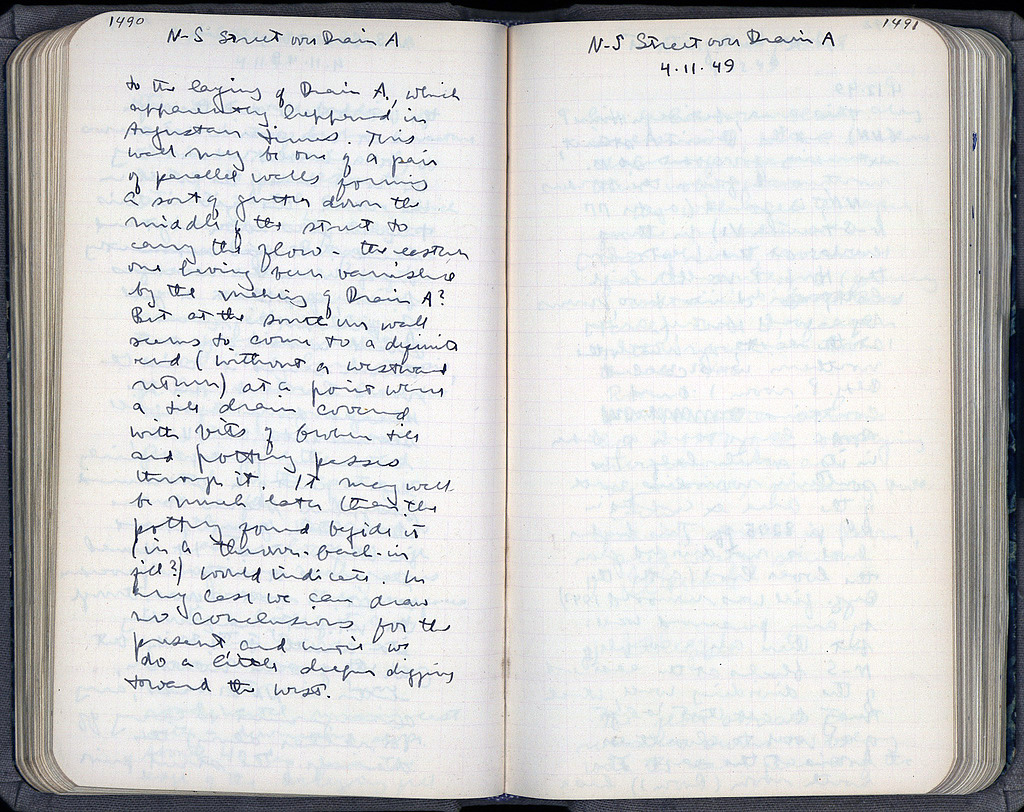 1490
N-S Street over Drain A
to the laying of Drain A, which
apparently happened in
Augustan times. This
wall may be one of a pair
of parallel walls forming
a sort of gutter down the
middle of the street to
carry the flow - the eastern
one having been vanished
by the making of Drain A?
But at the south our wall
seems to come to a definite
end (without a westward
return) at a point where
a tile drain covered
with bits of broken tile
and pottery passes
through it. It may well
be much later than the
pottery found beside it
(in a thrown-back-in
fill?) would indicate. In
any case we can draw
no conclusions for the
present and until we
do a little deeper digging
toward the west.
1491
N-S Street over Drain A
4.11.49